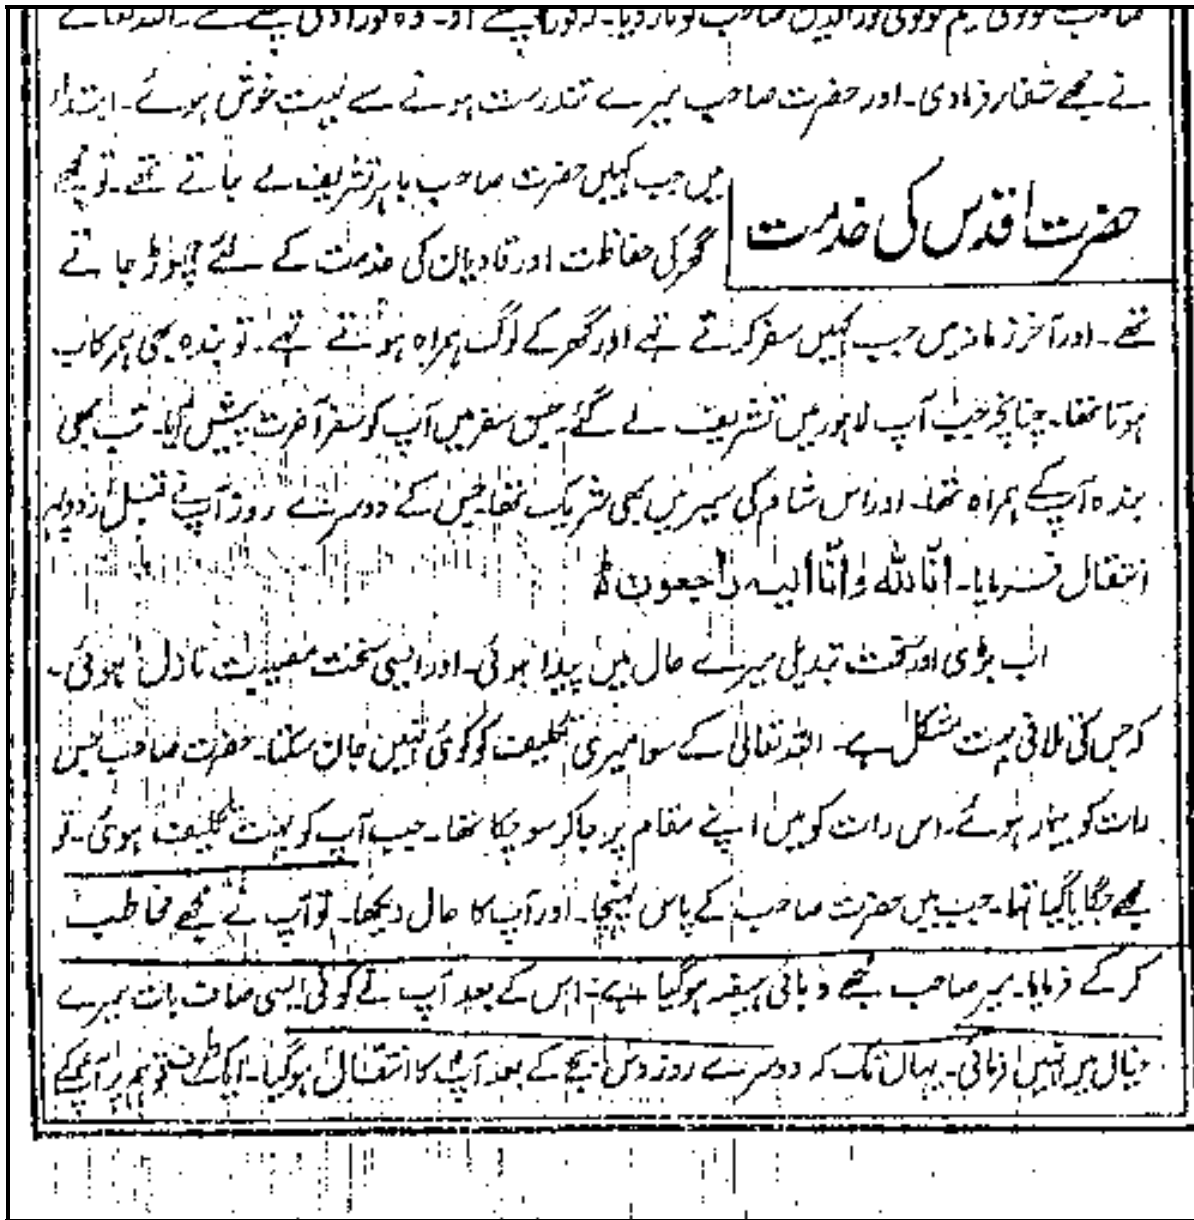 صاحب مولوی حکیم مولوی نورالدین صاحب کو تار دیا۔
نے مجھے شفا فرمادی۔ اور حضرت صاحب میرے تندرست ہونے سے بہت خوش ہوئے۔ ابتدا
حضرت اقدس کی خدمت
میں جب کہیں حضرت صاحب باہر تشریف لے جاتے تھے۔ تو مجھے
گھر کی حفاظت اور قادیان کی خدمت کے لئے چھوڑ جاتے
تھے۔ اور آخر زمانہ میں جب کہیں سفر کرتے تھے اور گھر کے لوگ ہمراہ ہوتے تھے۔ تو بندہ بھی ہمرکاب
ہوتا تھا۔ چنانچہ جب آپ لاہور میں تشریف لے گئے جس سفر میں آپ کو سفر آخرت پیش آیا۔ تب بھی
بندہ آپ کے ہمراہ تھا۔ اور اس شام کی سیر میں بھی شریک تھا جس کے دوسرے روز آپ نے قبل از دوپہر
انتقال فرمایا۔ انّا للہ وانّا الیہ راجعون ؕ
اب بڑی اور سخت تبدیل میرے حال میں پیدا ہوئی۔ اور ایسی سخت مصیبت نازل ہوئی۔
کہ جس کی تلافی بہت مشکل ہے۔ اللہ تعالیٰ کے سوا میری تکلیف کو کوئی نہیں جان سکتا۔ حضرت صاحب جس
رات کو بیمار ہوئے۔ اس رات کو میں اپنے مقام پر جا کر سو چکا تھا۔ جب آپ کو بہت تکلیف ہوئی۔ تو
مجھے جگایا گیا تھا۔ جب میں حضرت صاحب کے پاس پہنچا۔ اور آپ کا حال دیکھا۔ تو آپ نے مجھے مخاطب
کر کے فرمایا۔ میر صاحب مجھے وبائی ہیضہ ہو گیا ہے۔ اس کے بعد آپ نے کوئی ایسی صاف بات میرے
خیال میں نہیں فرمائی۔ یہاں تک کہ دوسرے روز دس بجے کے بعد آپ کا انتقال ہو گیا۔ ایک طرف تو ہم پر آپ کے